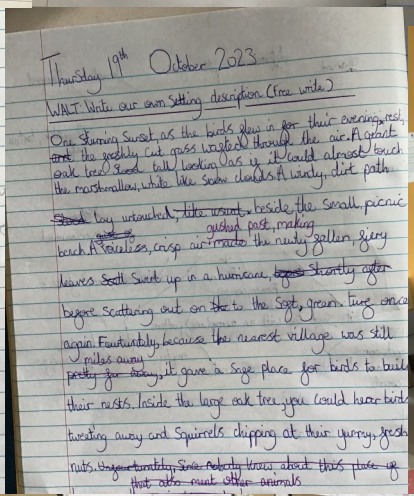 Thursday 19th October 2023
WALT: Write our own Setting description (free write)
One stuning Sunset, as the birds flew in for their evening rest,
and the freshly cut grass wafted through the air. A giant
oak tree stood tall looking as if it could almost touch
the marshmallow, white like snow clouds. A windy, dirt path
Stood lay untouched, like usual, beside the small, picnic
bench. A voiceless, crisp air made gushed past, making the newly fallen, fiery
leaves Swirl up in a hurricane, Shortly after
before Scattering out on the to the Soft, green turf once
again. Fourtuntly, because the nearest village was still
pretty far away, miles away, it gave a Safe place for birds to buil
their nests. Inside the large oak tree, you could hear birds
tweeting away and Squirrels chipping at their yummy, fresh
nuts. Unfourtuntly, Since nobody knew about this place of
that also meant other animals